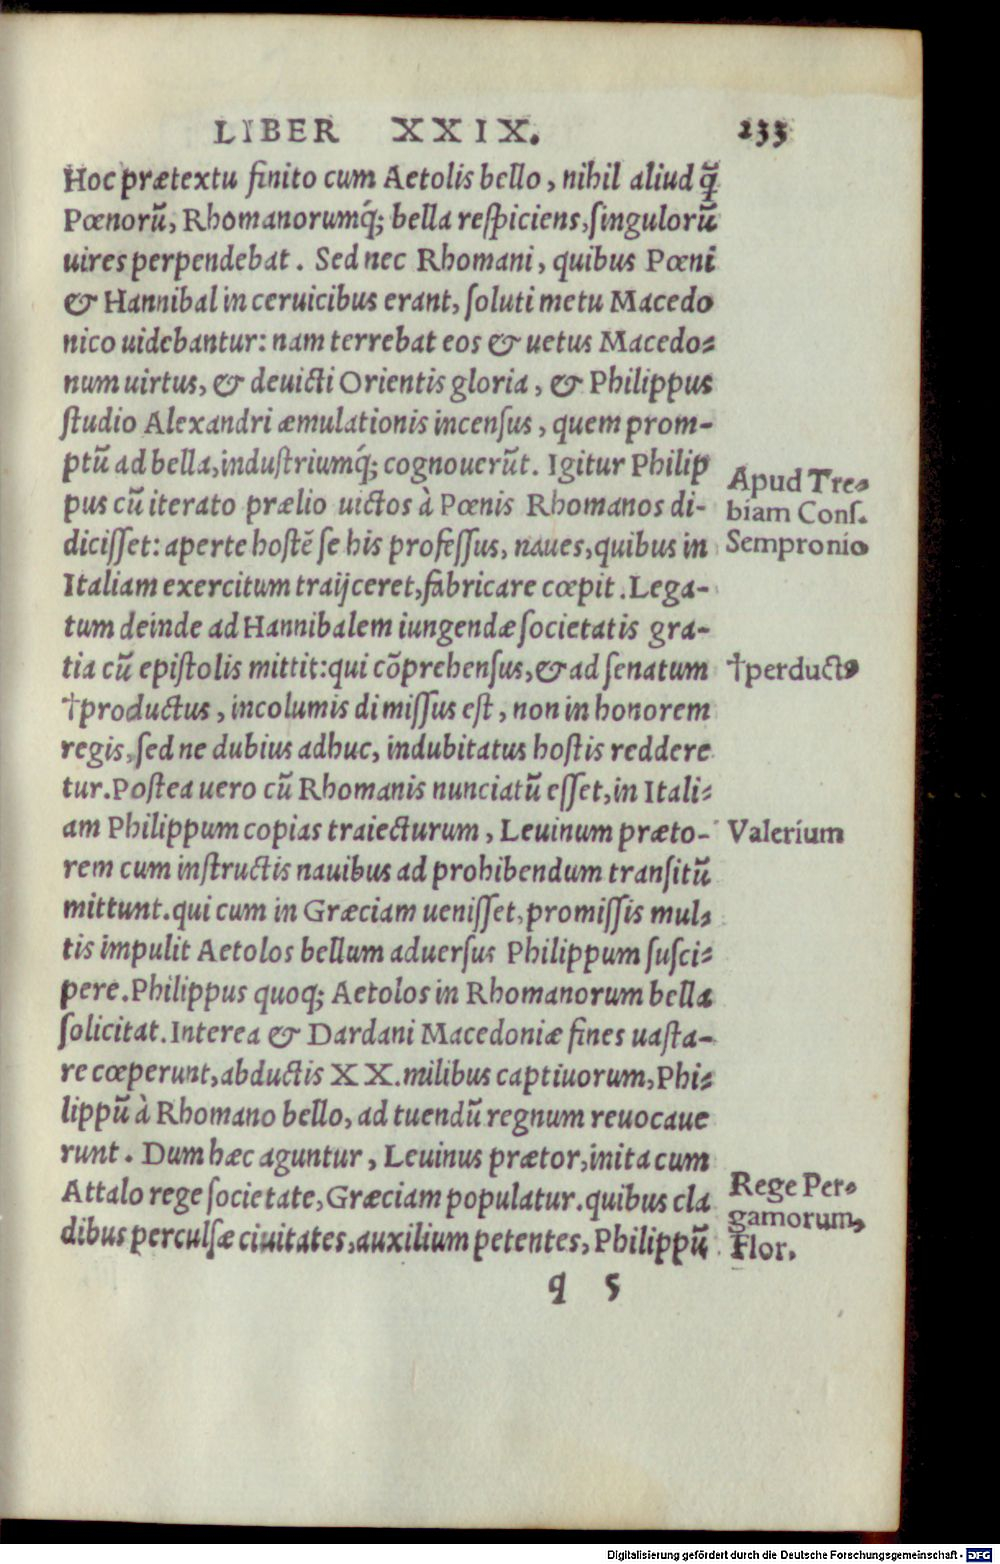 LIBER XXIX. 233
Hoc prætextu finito cum Aetolis bello, nihil aliud q̃
Pœnorũ, Rhomanorumq́; bella respiciens, singulorũ
uires perpendebat. Sed nec Rhomani, quibus Pœni
& Hannibal in ceruicibus erant, soluti metu Macedo
nico uidebantur: nam terrebat eos & uetus Macedo-
num uirtus, & deuicti Orientis gloria, & Philippus
studio Alexandri æmulationis incensus, quem prom-
ptũ ad bella, industriumq́; cognouerũt. Igitur Philip
pus cũ iterato prælio uictos à Pœnis Rhomanos di-
dicisset: aperte hostẽ se his professus, naues, quibus in
Italiam exercitum traijceret, fabricare cœpit. Lega-
tum deinde ad Hannibalem iungendæ societatis gra-
tia cũ epistolis mittit: qui cõprehensus, & ad senatum
†productus, incolumis dimissus est, non in honorem
regis, sed ne dubius adhuc, indubitatus hostis reddere
tur. Postea uero cũ Rhomanis nunciatũ esset, in Itali-
am Philippum copias traiecturum, Leuinum præto-
rem cum instructis nauibus ad prohibendum transitũ
mittunt. qui cum in Græciam uenisset, promissis mul-
tis impulit Aetolos bellum aduersus Philippum susci-
pere. Philippus quoq; Aetolos in Rhomanorum bella
solicitat. Interea & Dardani Macedoniæ fines uasta-
re cœperunt, abductis XX. milibus captiuorum, Phi-
lippũ à Rhomano bello, ad tuendũ regnum reuocaue
runt. Dum hæc aguntur, Leuinus prætor, inita cum
Attalo rege societate, Græciam populatur. quibus cla
dibus perculsæ ciuitates, auxilium petentes, Philippũ
q 5
Apud Tre-
biam Cons.
Sempronio
†perductꝰ
Valerium
Rege Per-
gamorum,
Flor.
Digitalisierung gefördert durch die Deutsche Forschungsgemeinschaft - DFG